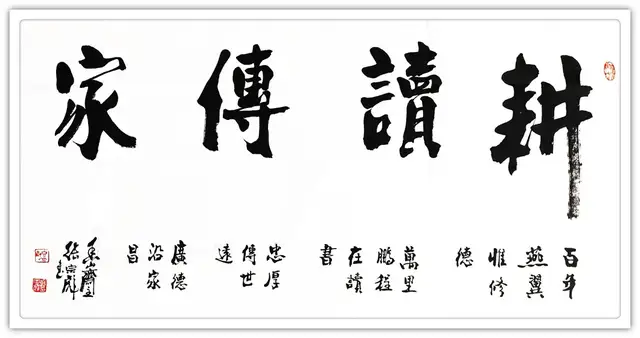 耕讀傳家
百年
燕翼
惟修
德
萬里
鵬程
在讀
書
忠厚
傳世
遠
廣德
沿家
昌